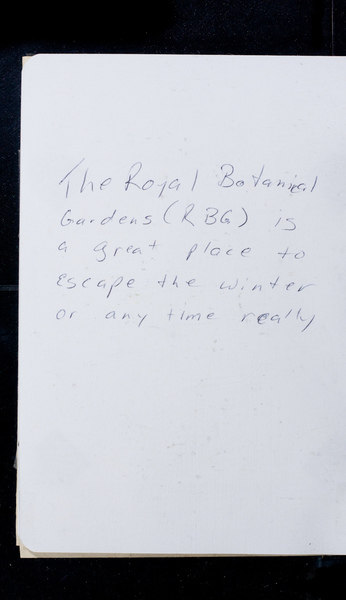 The Royal Botanical
Gardens (RBG) is
a great place to
escape the winter
or any time really